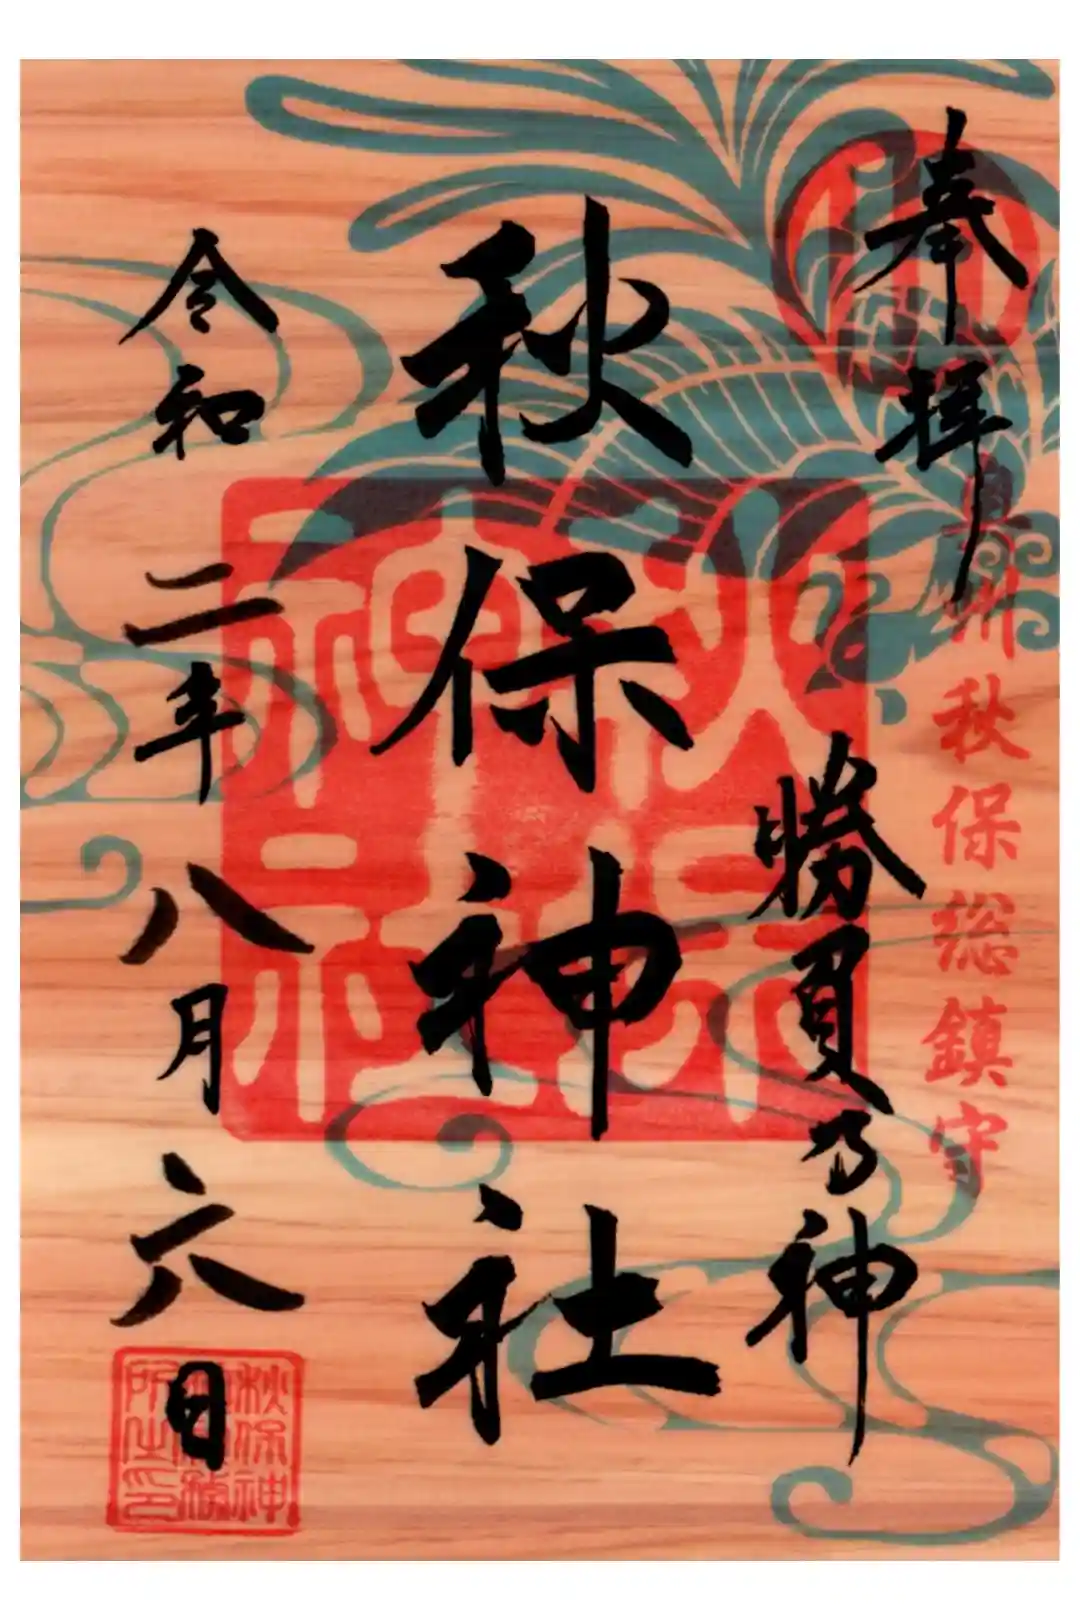 奉拝
奥州秋保総鎮守
勝負乃神
秋保神社
令和二年八月六日
秋保神社